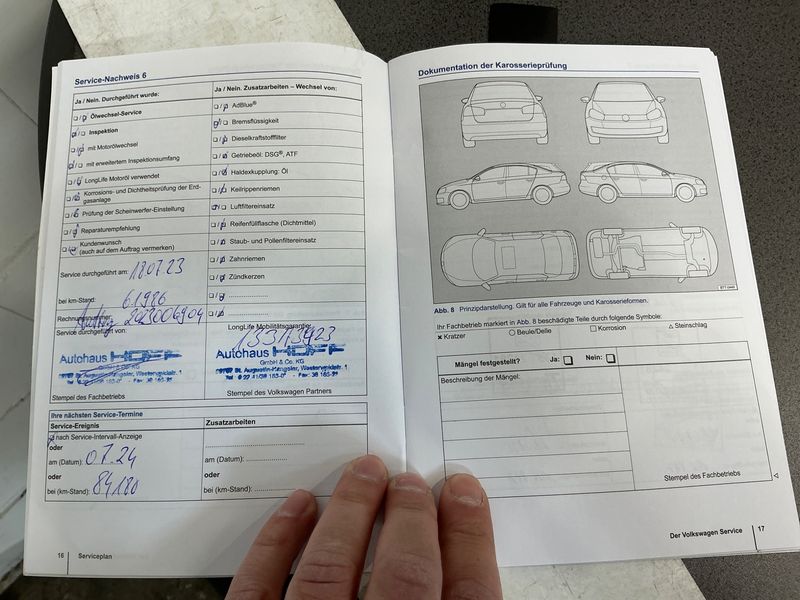 Service-Nachweis 6
Ja / Nein. Durchgeführt wurde:
Ölwechsel-Service
Inspektion
mit Motorölwechsel
mit erweitertem Inspektionsumfang
LongLife Motoröl verwendet
Korrosions- und Dichtheitsprüfung der Erd-
gasanlage
Prüfung der Scheinwerfer-Einstellung
Reparaturempfehlung
Kundenwunsch
(auch auf dem Auftrag vermerken)
Service durchgeführt am: 18.07.23
bei km-Stand: 61986
Auftrag 202006904
Service durchgeführt von:
Autohaus HOFF
GmbH & Co. KG
Stempel des Fachbetriebs
Ja / Nein. Zusatzarbeiten – Wechsel von:
AdBlue®
Bremsflüssigkeit
Dieselkraftstofffilter
Getriebeöl: DSG®, ATF
Haldexkupplung: Öl
Keilrippenriemen
Luftfiltereinsatz
Reifenfüllflasche (Dichtmittel)
Staub- und Pollenfiltereinsatz
Zahnriemen
Zündkerzen
LongLife Mobilitätsgarantie:
Autohaus HOFF
GmbH & Co. KG
Stempel des Volkswagen Partners
Ihre nächsten Service-Termine
Service-Ereignis
nach Service-Intervall-Anzeige
oder
am (Datum): 07.24
oder
bei (km-Stand): 84180
Zusatzarbeiten
am (Datum):
oder
bei (km-Stand):
16 Serviceplan
Dokumentation der Karosserieprüfung
Abb. 8 Prinzipdarstellung. Gilt für alle Fahrzeuge und Karosserieformen.
Ihr Fachbetrieb markiert in Abb. 8 beschädigte Teile durch folgende Symbole:
x Kratzer ○ Beule/Delle □ Korrosion △ Steinschlag
Mängel festgestellt? Ja: Nein:
Beschreibung der Mängel:
Stempel des Fachbetriebs
Der Volkswagen Service 17